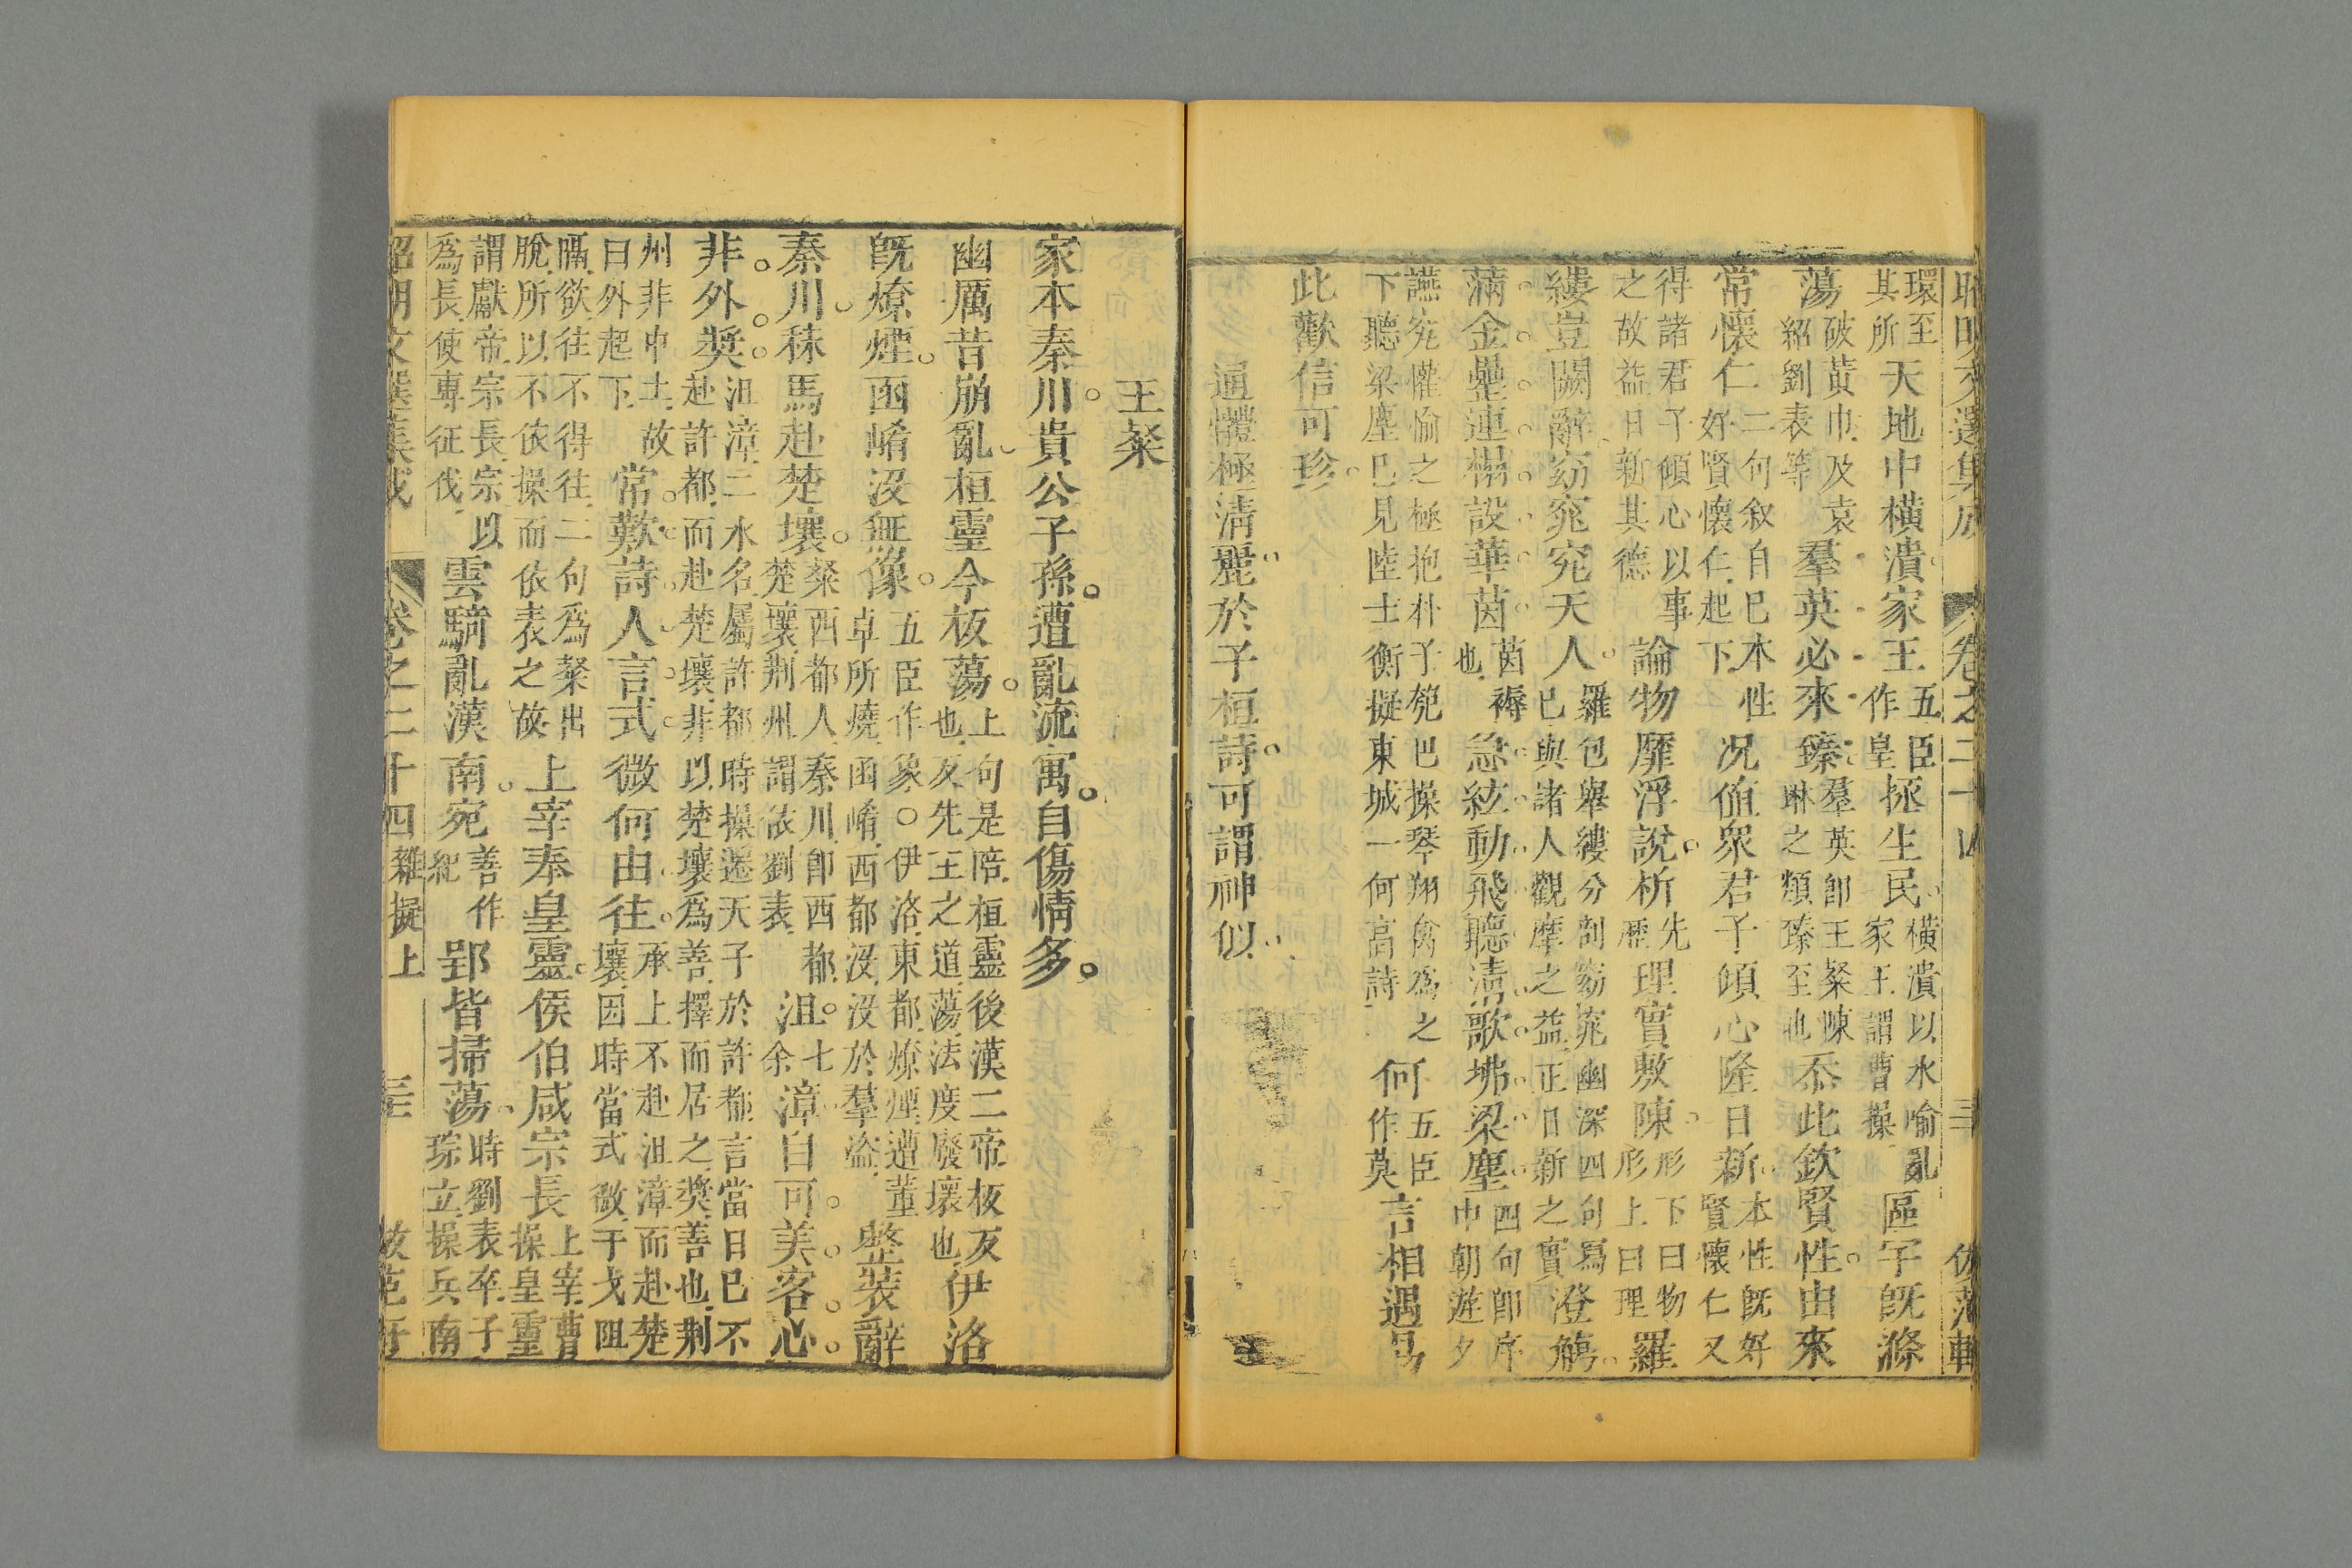 昭明文選集成 卷之二十四 三 傚范軒
環至其所天地中橫潰。家王五臣作皇拯生民。橫潰以水喻亂家王謂曹操區宇旣滌
蕩破黃巾及袁紹劉表等羣英必來臻羣英卽王粲陳琳之類臻至也忝此欽賢性。由來
常懷仁二句叙自己本性好賢懷仁起下况值衆君子傾心隆日新。本性旣好賢懷仁又
得諸君子傾心以事之故益日新其德論物靡浮說。析先歷理實敷陳。形下曰物形上曰理羅
縷豈闕辭。窈窕究天人。羅包舉縷分剖窈窕幽深四句寫已與諸人觀摩之益正日新之實澄觴。
滿金罍連榻設華茵。茵褥也急絃動飛聽清歌拂梁塵。四句卽序中朝遊夕
讌究懽愉之極抱朴子瓠巴操琴翔禽爲之下聽梁塵已見陸士衡擬東城一何高詩何五臣作莫言相遇易
此歡信可珍。
通體極淸麗。於子桓詩。可謂神似
王粲
家本秦川。貴公子孫。遭亂流寓。自傷情多。
幽厲昔崩亂桓靈今板蕩。上句是陪桓靈後漢二帝板反也反先王之道蕩法度廢壞也伊洛
旣燎煙。函崤沒無像。五臣作象○伊洛東都燎煙遭董卓所燒函崤西都沒沒於羣盜整裝辭
秦川秣馬赴楚壤。粲西都人秦川卽西都楚壤荆州謂依劉表沮七余漳自可美。客心。
非外獎。沮漳二水名屬許都時操遷天子於許都言當日已不赴許都而赴楚壤非以楚壤爲善擇而居之獎善也荆
州非中土故曰外起下常歎詩人言。式微何由往。承上不赴沮漳而赴楚壤因時當式微干戈阻
隔欲往不得往二句爲粲出脫所以不依操而依表之故上宰奉皇靈。侯伯咸宗長上宰曹操皇靈
謂獻帝宗長宗以爲長使專征伐雲騎亂漢南。宛善作紀郢皆掃蕩。時劉表卒子琮立操兵南
昭明文選集成 卷之二十四 雜擬上 三三